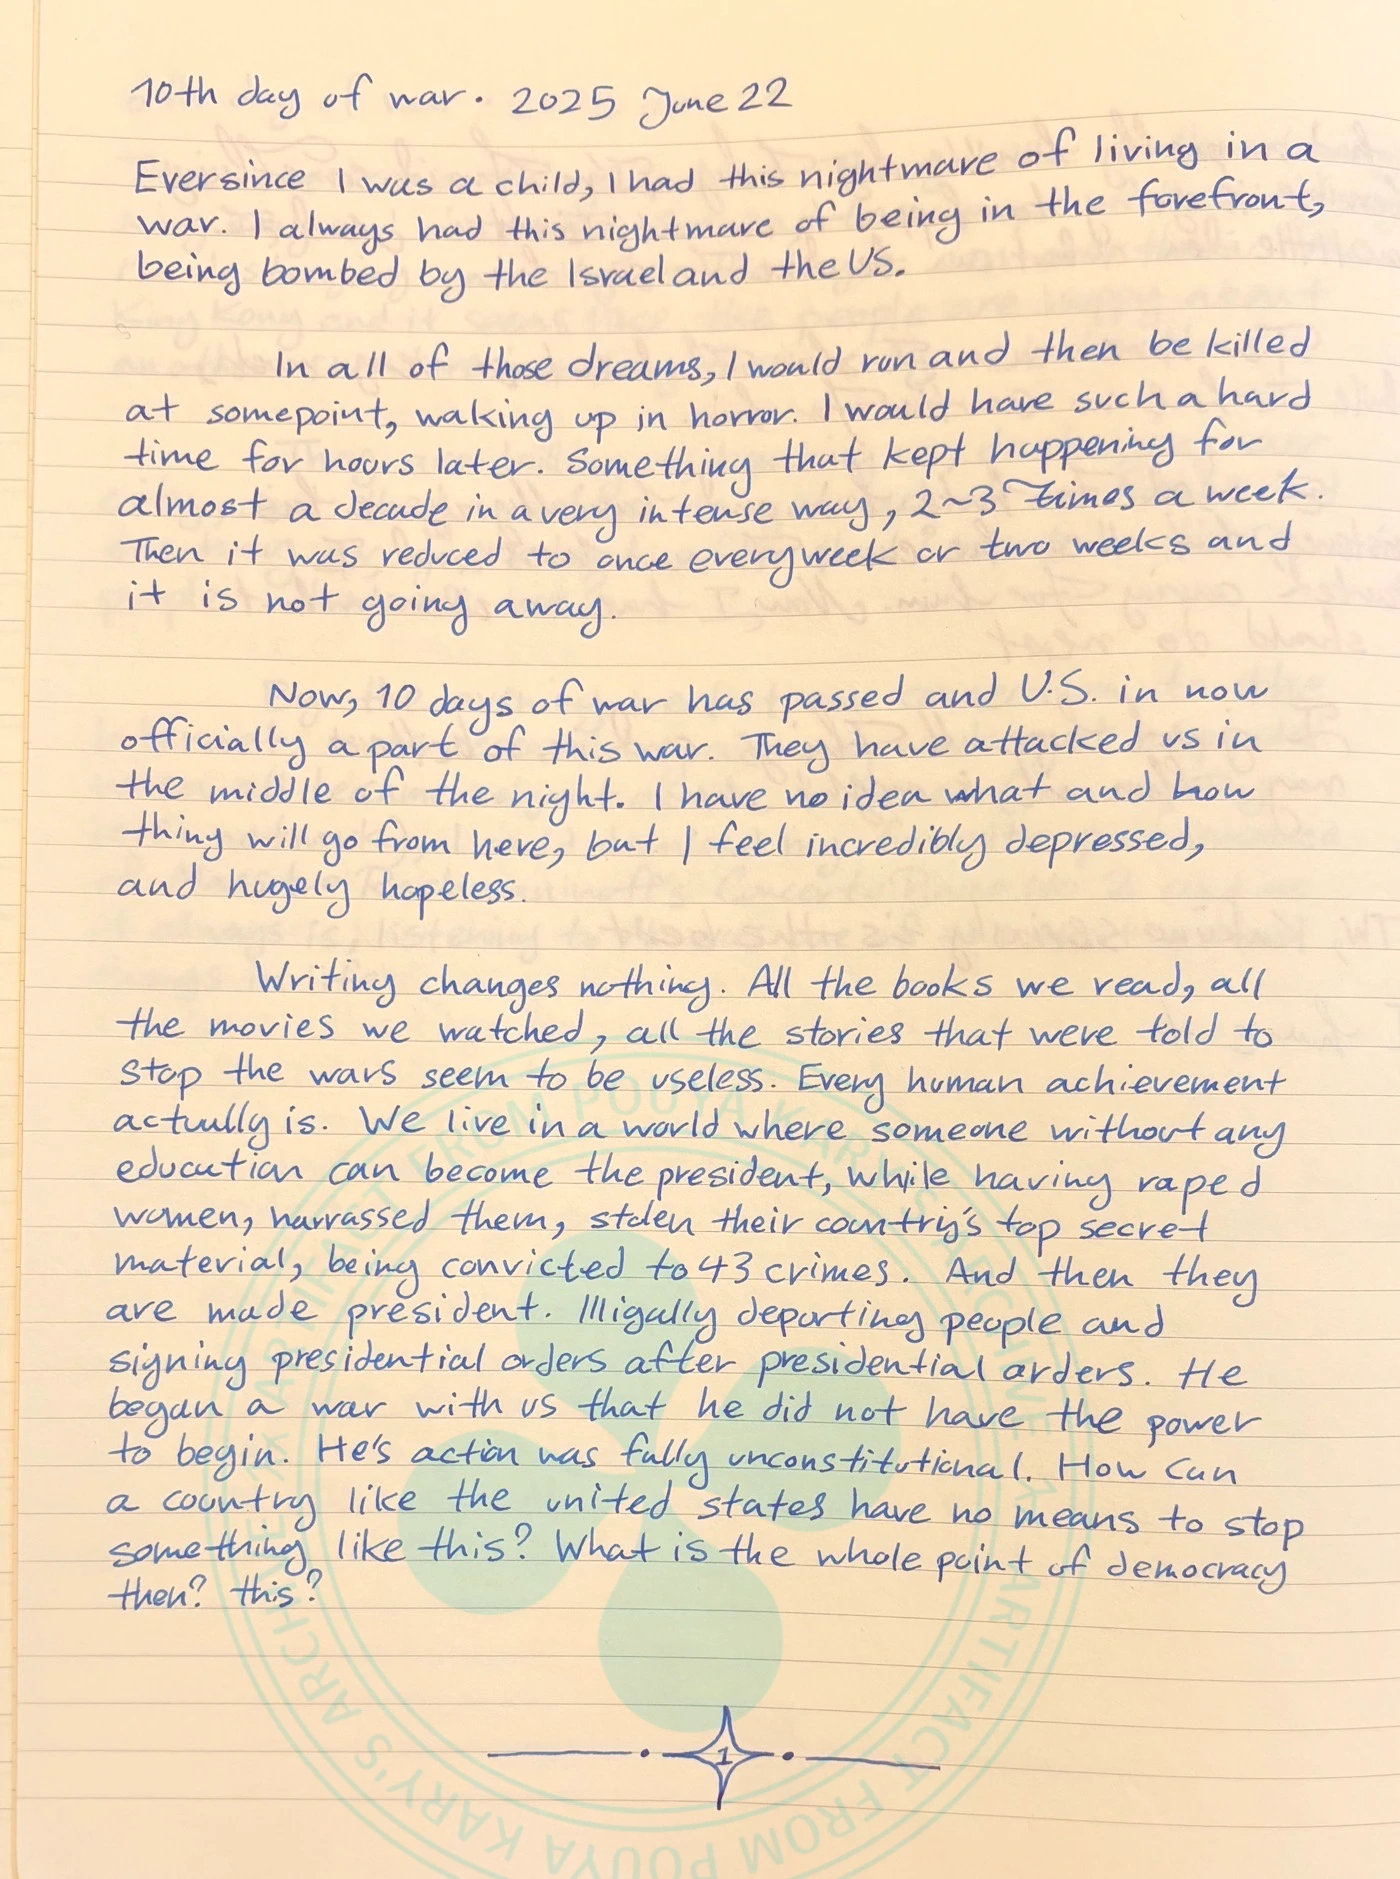 10th day of war. 2025 June 22
Eversince I was a child, I had this nightmare of living in a
war. I always had this nightmare of being in the forefront,
being bombed by the Israel and the US.
In all of those dreams, I would run and then be killed
at somepoint, waking up in horror. I would have such a hard
time for hours later. Something that kept happening for
almost a decade in a very intense way, 2~3 times a week.
Then it was reduced to once everyweek or two weeks and
it is not going away.
Now, 10 days of war has passed and U.S. in now
officially a part of this war. They have attacked us in
the middle of the night. I have no idea what and how
thing will go from here, but I feel incredibly depressed,
and hugely hopeless.
Writing changes nothing. All the books we read, all
the movies we watched, all the stories that were told to
stop the wars seem to be useless. Every human achievement
actually is. We live in a world where someone without any
education can become the president, while having raped
women, harrassed them, stolen their country's top secret
material, being convicted to 43 crimes. And then they
are made president. Illigally deporting people and
signing presidential orders after presidential orders. He
began a war with us that he did not have the power
to begin. He's action was fully unconstitutional. How can
a country like the united states have no means to stop
something like this? What is the whole point of democracy
then? this?
1
ARTIFACT FROM POUYA KARY'S ARCHIVE